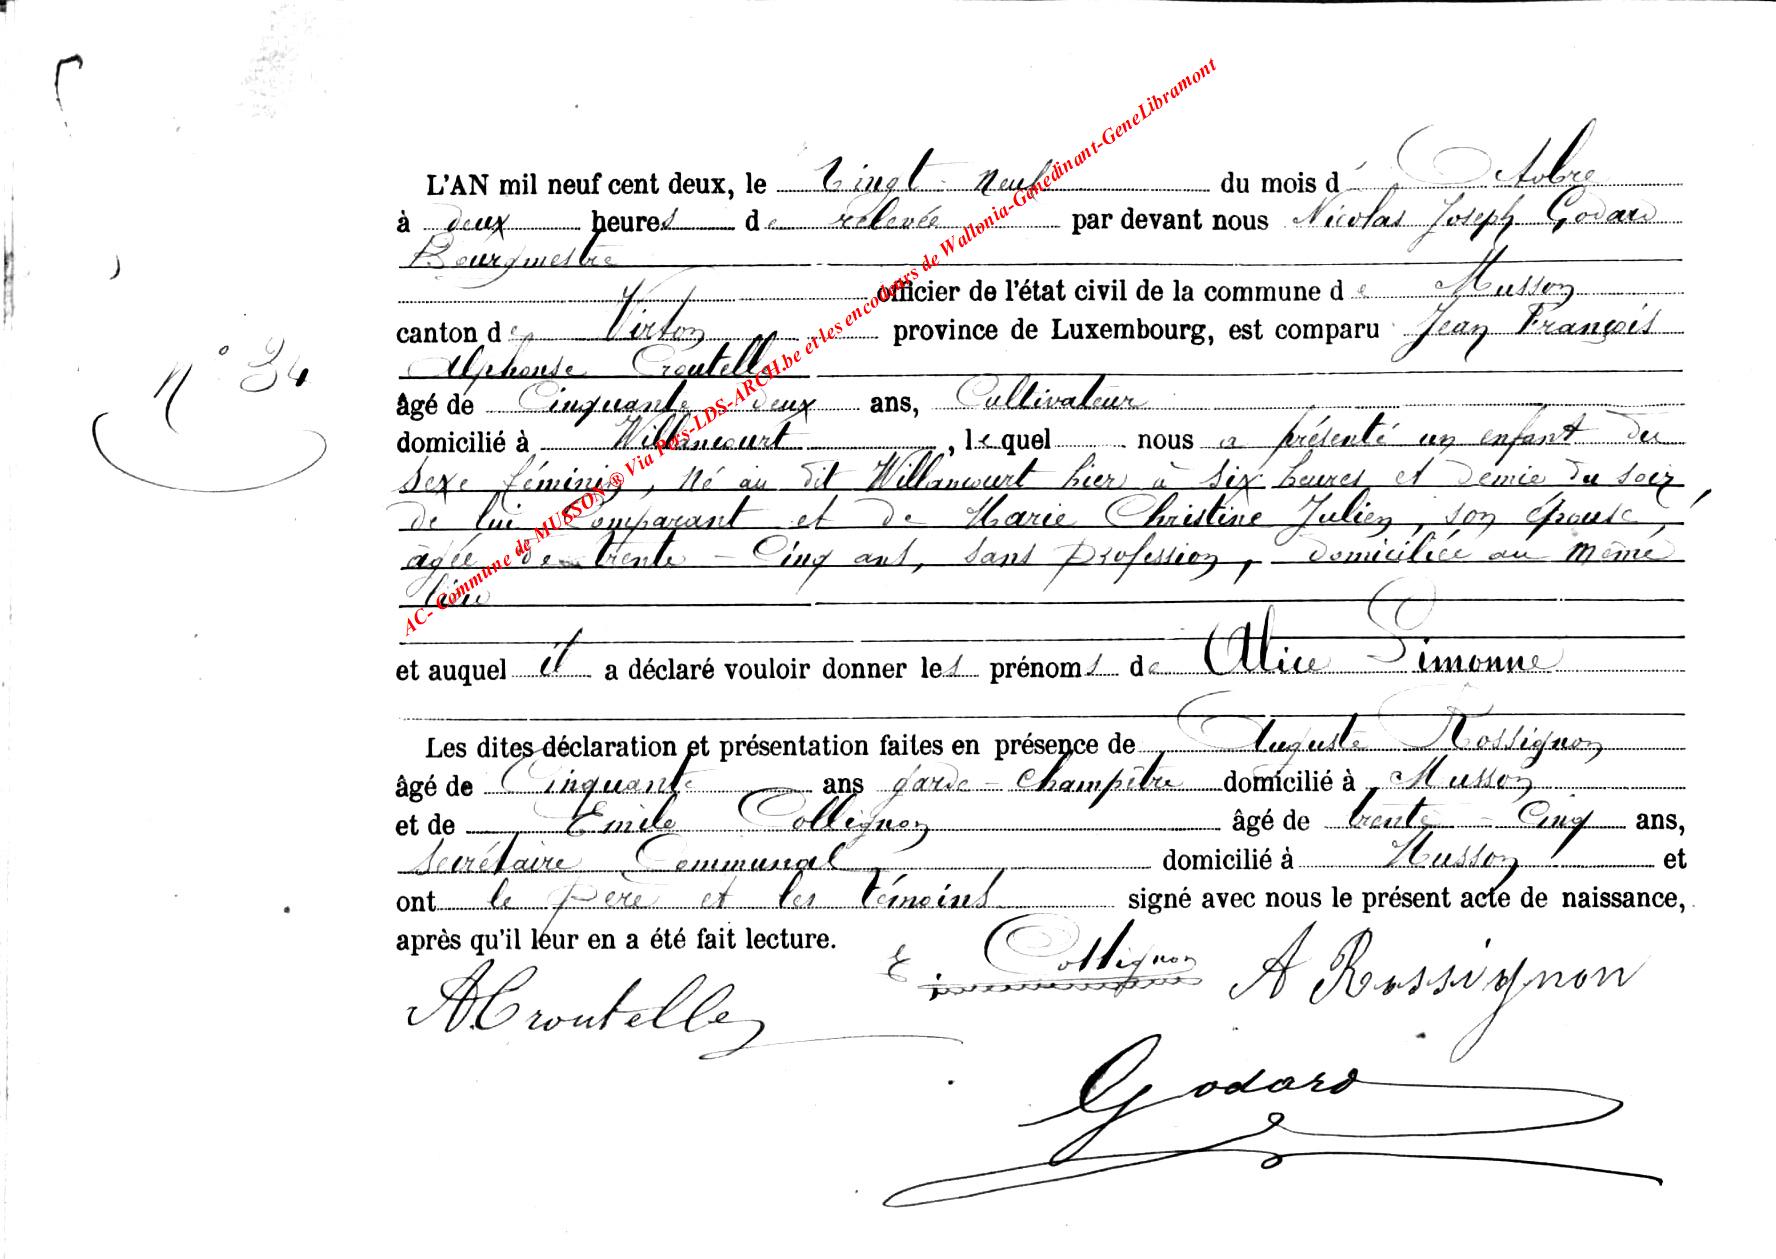 L'AN mil neuf cent deux, le Vingt-neuf du mois d'Octobre
à deux heures de relevée par devant nous Nicolas Joseph Godard
Bourgmestre
officier de l'état civil de la commune de Musson
canton de Virton province de Luxembourg, est comparu Jean François
Alphonse Croutelle
âgé de Cinquante deux ans, Cultivateur
domicilié à Willancourt, lequel nous a présenté un enfant du
sexe féminin, né au dit Willancourt hier à six heures et demie du soir
de lui Comparant et de Marie Christine Julien, son épouse,
âgée de trente-Cinq ans, sans profession, domiciliée au même
lieu
n° 34
et auquel il a déclaré vouloir donner les prénoms de Alice Simonne
Les dites déclaration et présentation faites en présence de Auguste Rossignon
âgé de Cinquante ans garde-champêtre domicilié à Musson
et de Emile Collignon âgé de trente-Cinq ans,
Secrétaire Communal domicilié à Musson et
ont le père et les témoins signé avec nous le présent acte de naissance,
après qu'il leur en a été fait lecture.
E. Collignon A Rossignon
A Croutelle
Godard
AC- Commune de MUSSON ® Via Pors-LDS-ARCH.be et les encodeurs de Wallonia-Genedinant-GeneLibramont